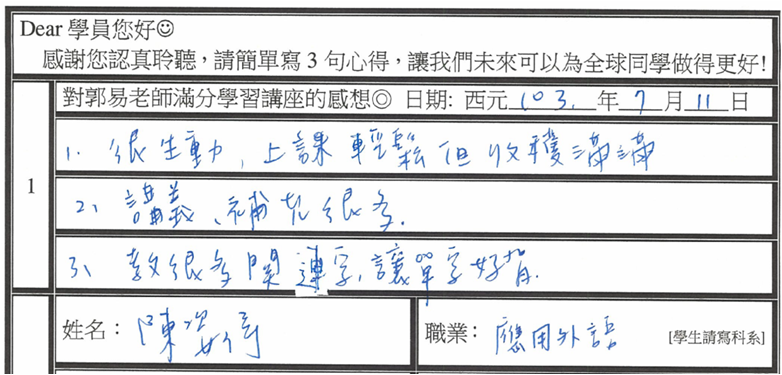 Dear 學員您好☺
感謝您認真聆聽，請簡單寫 3 句心得，讓我們未來可以為全球同學做得更好!
1
對郭易老師滿分學習講座的感想◎ 日期: 西元 103. 年 7 月 11 日
1. 很生動，上課輕鬆但收穫滿滿
2、講義、補充很多.
3、教很多関連字，讓單字好背.
姓名：陳
職業：應用外語 [學生請寫科系]